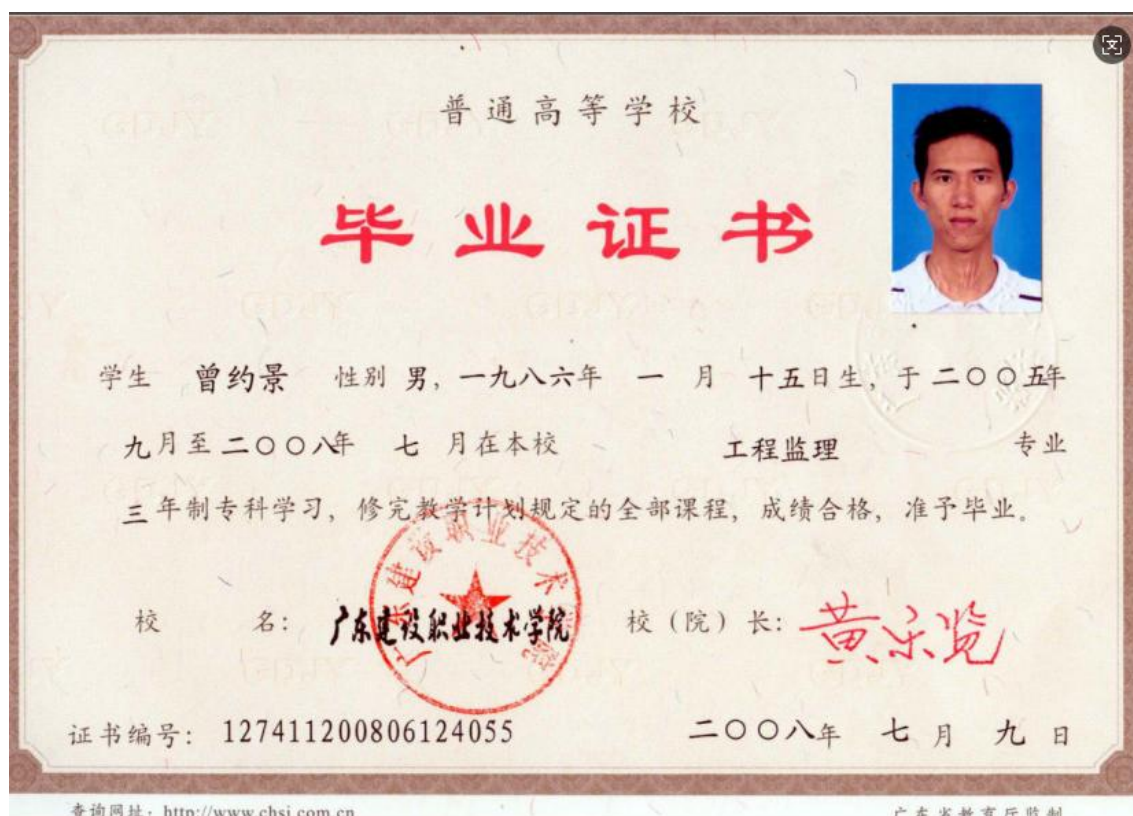 普通高等学校
毕业证书
学生 曾约景 性别 男，一九八六年 一 月 十五日生，于二〇〇五年
九月至二〇〇八年 七 月在本校 工程监理 专业
三年制专科学习，修完教学计划规定的全部课程，成绩合格，准予毕业。
校 名：广东建设职业技术学院 校（院）长：
广东建设职业技术学院
证书编号：127411200806124055 二〇〇八年 七 月 九 日
查询网址：http://www.chsi.com.cn 广东省教育厅监制